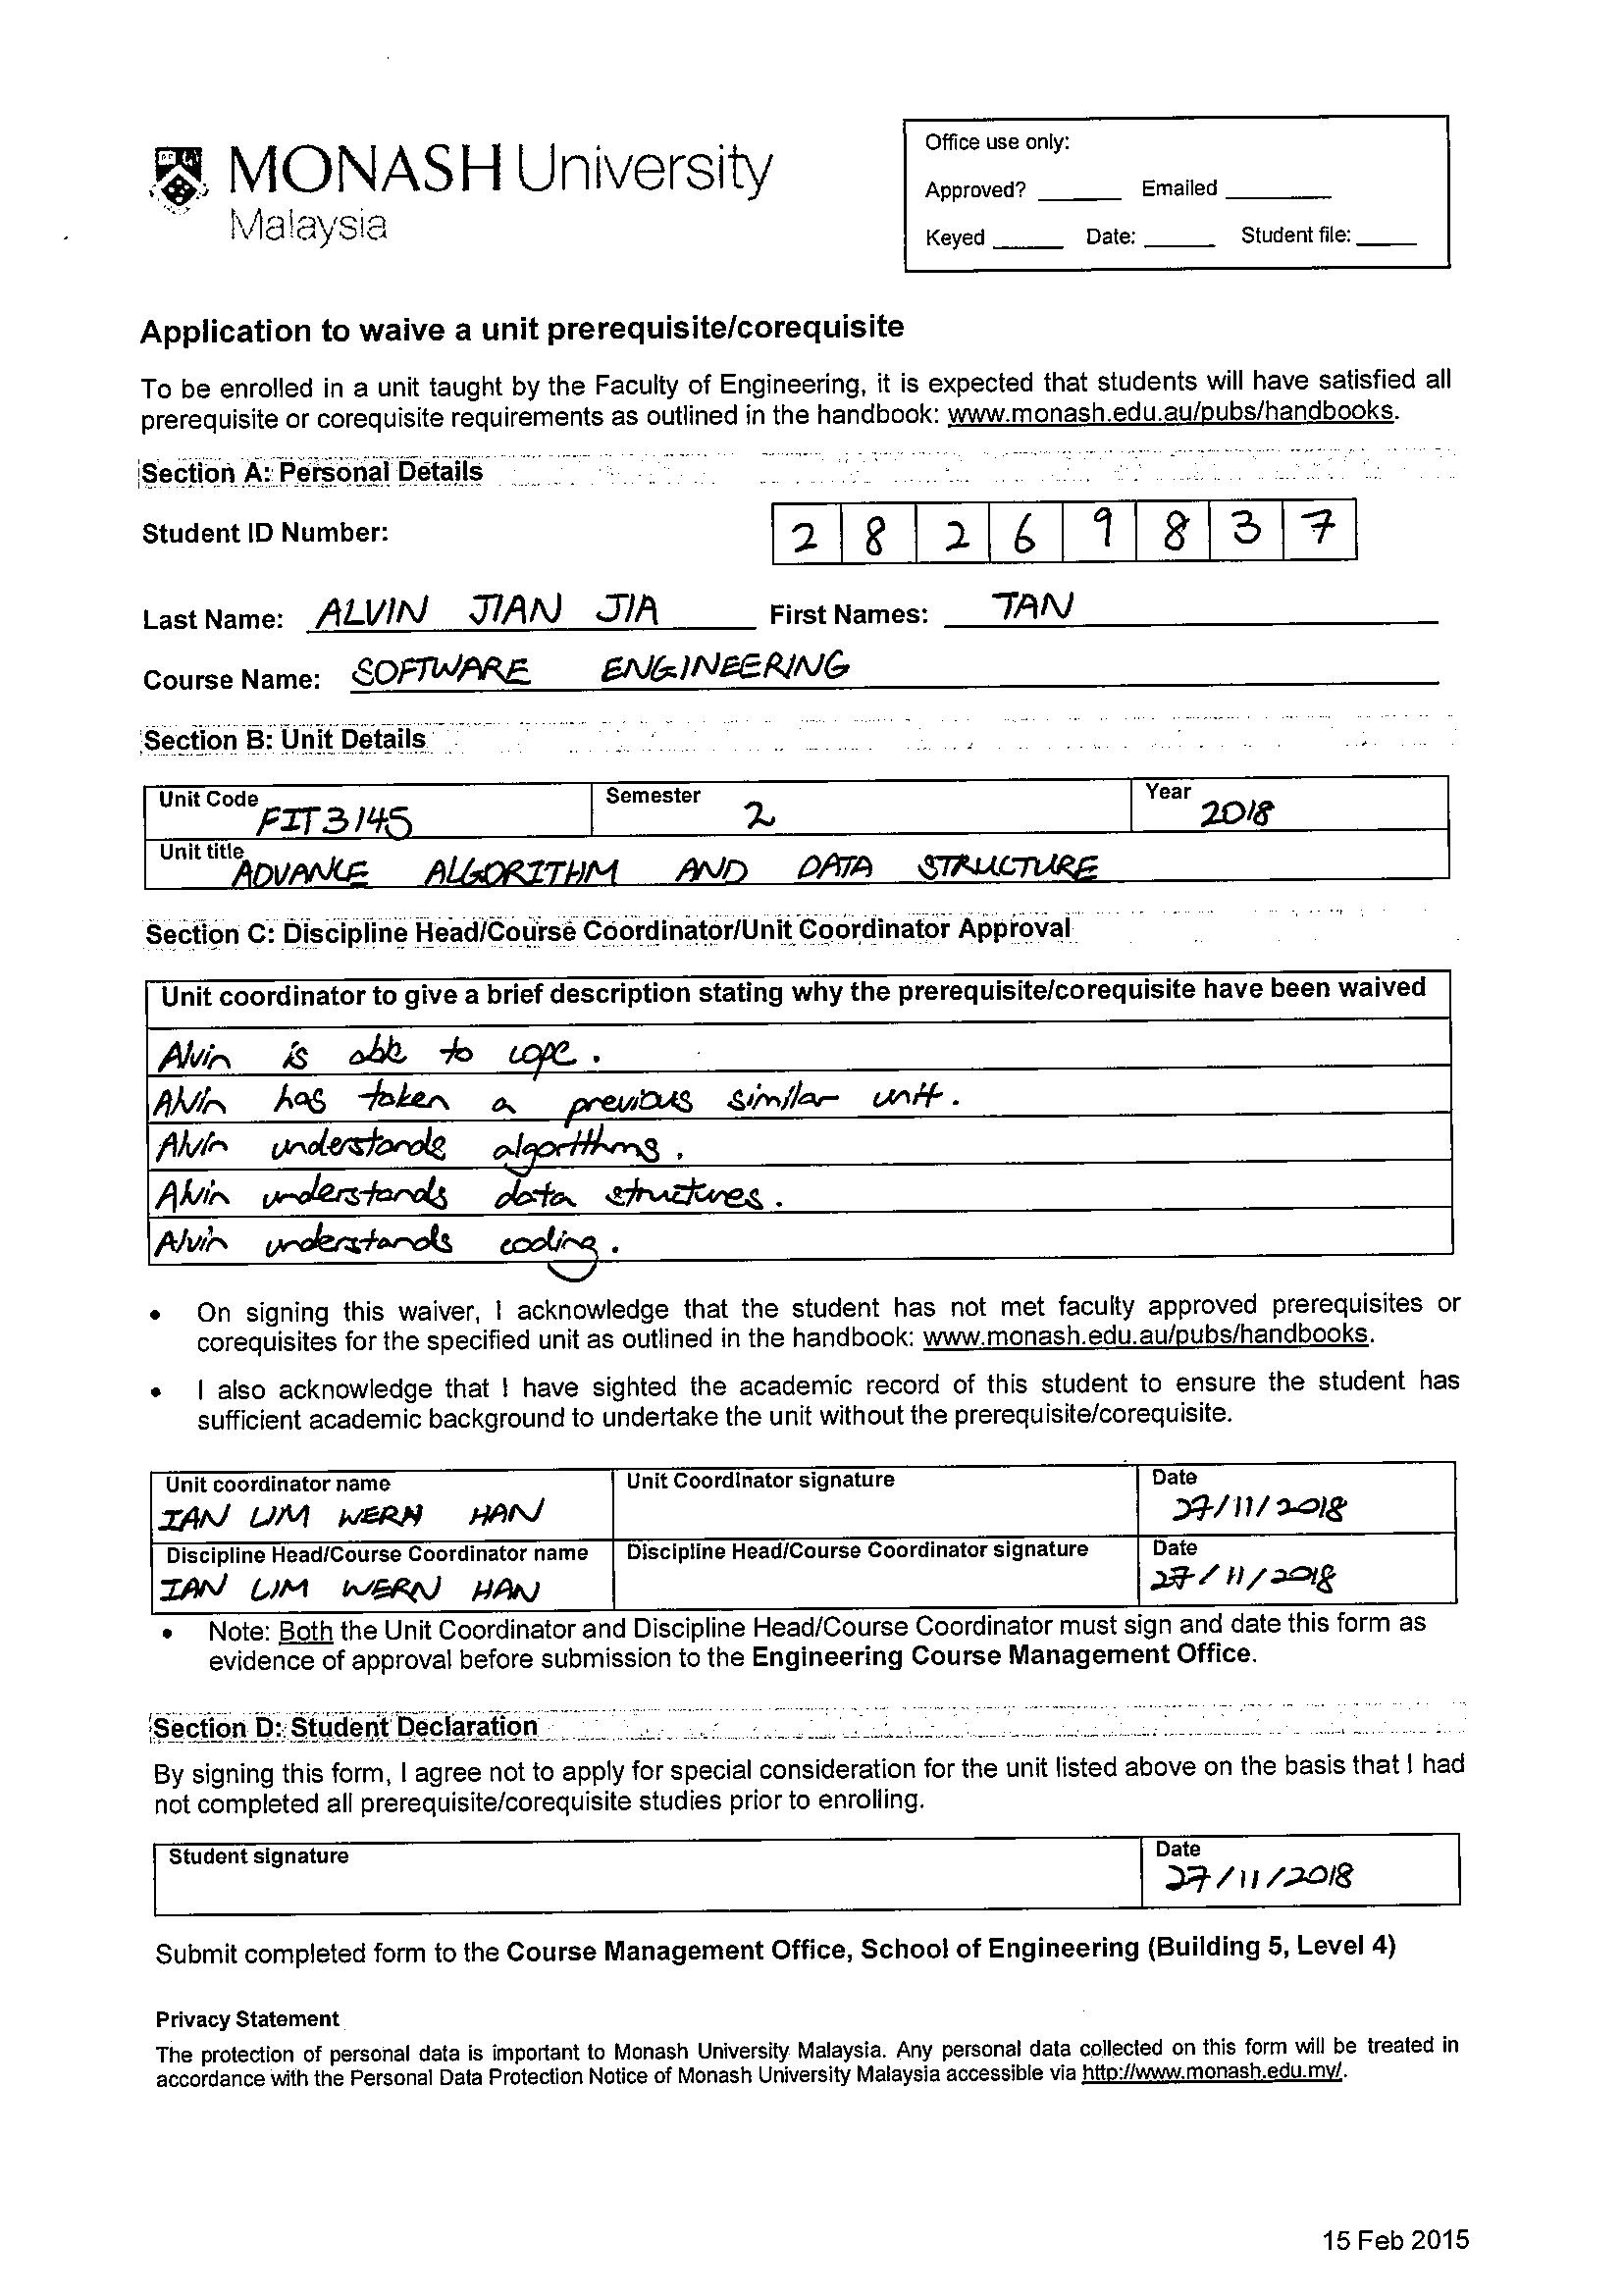 MONASH University
Malaysia
Office use only:
Approved? ______ Emailed ______
Keyed ______ Date: ______ Student file: ______
Application to waive a unit prerequisite/corequisite
To be enrolled in a unit taught by the Faculty of Engineering, it is expected that students will have satisfied all
prerequisite or corequisite requirements as outlined in the handbook: www.monash.edu.au/pubs/handbooks.
Section A: Personal Details
Student ID Number: 2 8 2 6 9 8 3 7
Last Name: ALVIN JIAN JIA First Names: TAN
Course Name: SOFTWARE ENGINEERING
Section B: Unit Details
Unit Code FIT3145 Semester 2 Year 2018
Unit title ADVANCE ALGORITHM AND DATA STRUCTURE
Section C: Discipline Head/Course Coordinator/Unit Coordinator Approval
Unit coordinator to give a brief description stating why the prerequisite/corequisite have been waived
Alvin is able to cope.
Alvin has taken a previous similar unit.
Alvin understands algorithms.
Alvin understands data structures.
Alvin understands coding.
• On signing this waiver, I acknowledge that the student has not met faculty approved prerequisites or
corequisites for the specified unit as outlined in the handbook: www.monash.edu.au/pubs/handbooks.
• I also acknowledge that I have sighted the academic record of this student to ensure the student has
sufficient academic background to undertake the unit without the prerequisite/corequisite.
Unit coordinator name Unit Coordinator signature Date
IAN LIM WERN HAN 27/11/2018
Discipline Head/Course Coordinator name Discipline Head/Course Coordinator signature Date
IAN LIM WERN HAN 27/11/2018
• Note: Both the Unit Coordinator and Discipline Head/Course Coordinator must sign and date this form as
evidence of approval before submission to the Engineering Course Management Office.
Section D: Student Declaration
By signing this form, I agree not to apply for special consideration for the unit listed above on the basis that I had
not completed all prerequisite/corequisite studies prior to enrolling.
Student signature Date
27/11/2018
Submit completed form to the Course Management Office, School of Engineering (Building 5, Level 4)
Privacy Statement
The protection of personal data is important to Monash University Malaysia. Any personal data collected on this form will be treated in
accordance with the Personal Data Protection Notice of Monash University Malaysia accessible via http://www.monash.edu.my/.
15 Feb 2015